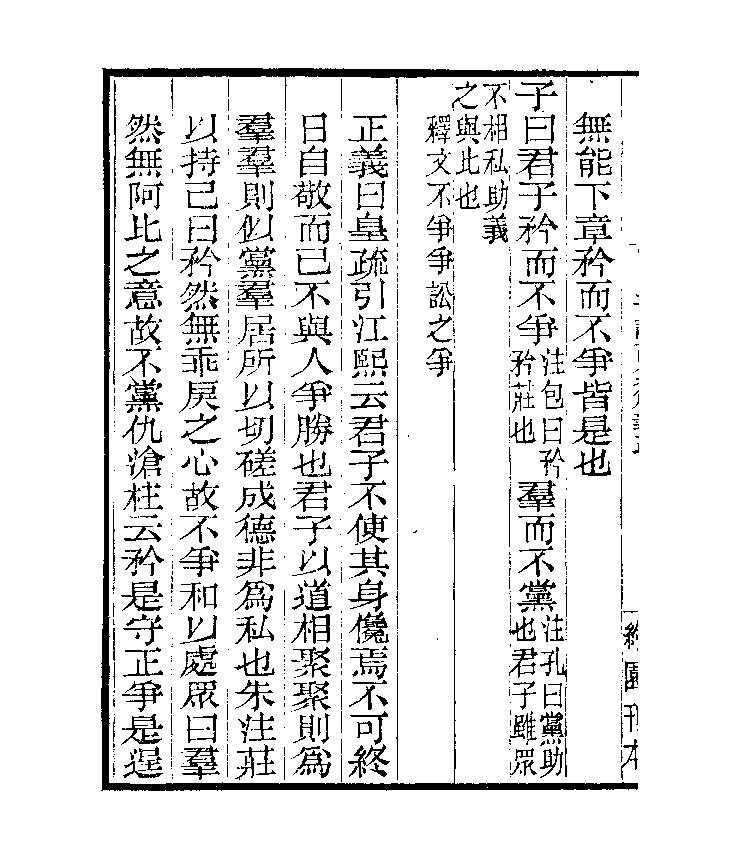 園刊本
無能下章矜而不爭皆是也
子曰君子矜而不爭注包曰矜矜莊也羣而不黨注孔曰黨助也君子雖眾
不相私助義
之與比也
釋文不爭爭訟之爭
正義曰皇疏引江熙云君子不使其身儳焉不可終
日自敬而已不與人爭勝也君子以道相聚聚則爲
羣羣則似黨羣居所以切磋成德非爲私也朱注莊
以持己曰矜然無乖戾之心故不爭和以處眾曰羣
然無阿比之意故不黨仇滄柱云矜是守正爭是逞